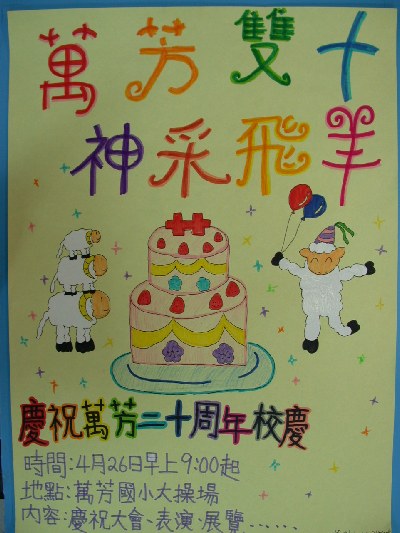 萬芳雙十
神采飛羊
慶祝萬芳二十周年校慶
時間:4月26日早上9:00起
地點:萬芳國小大操場
內容:慶祝大會、表演、展覽……